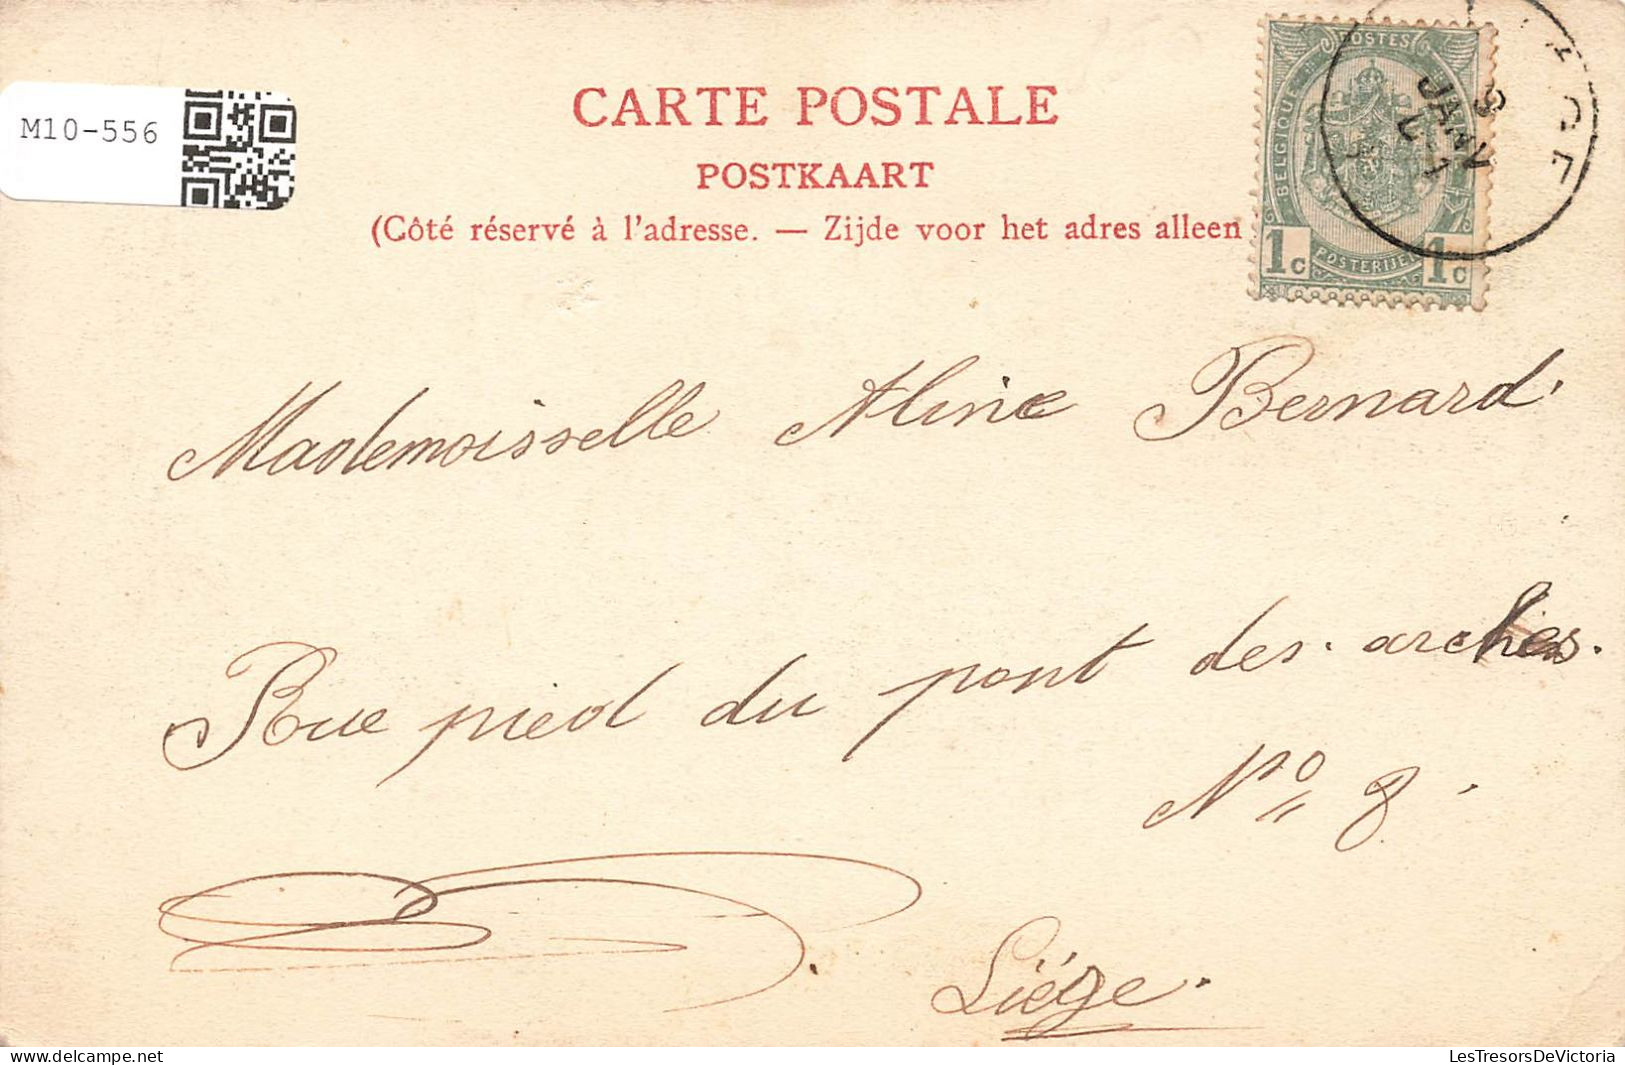 CARTE POSTALE
M10-556
POSTKAART
(Côté réservé à l'adresse. — Zijde voor het adres alleen
POSTES
BELGIQUE
POSTERIJEN
1c 1c
JANV
Mademoisselle Aline Bernard.
Rue pied du pont des arches.
N° 8.
Liége.
LesTresorsDeVictoria